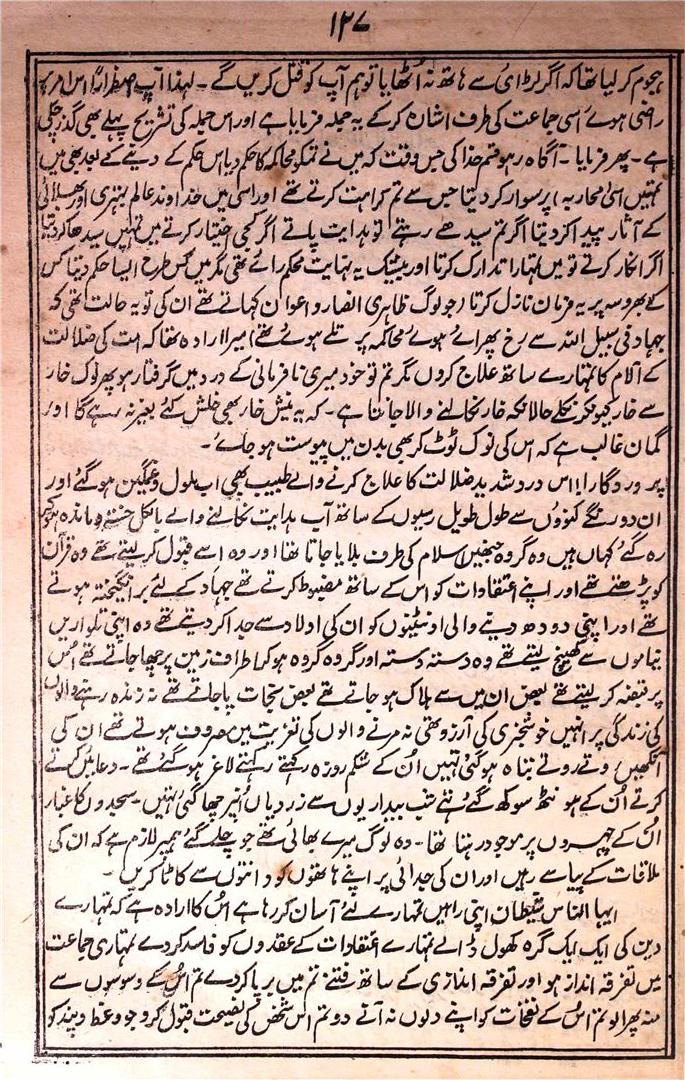 ۱۲۷
ہجوم کر لیا تھا کہ اگر لڑائی سے ہاتھ نہ اُٹھایا تو ہم آپ کو قتل کریں گے۔ لہذا آپ اضطراراً اس امر پر
راضی ہوئے اسی جماعت کی طرف اشارہ کر کے یہ جملہ فرمایا ہے اور اس جملہ کی تشریح پہلے بھی گذر چکی
ہے۔ پھر فرمایا۔ آگاہ رہو قسم خدا کی جس وقت کہ میں نے تمکو محاکمہ کا حکم دیا اس حکم کے دینے کے بعد بھی میں
تمہیں اسی (محاربہ) پر سوار کر دیتا جس سے تم کراہت کرتے تھے اور اسی میں خداوند عالم بہتری اور بھلائی
کے آثار پیدا کر دیتا اگر تم سیدھے رہتے تو ہدایت پاتے اگر کجی اختیار کرتے میں تمہیں سیدھا کر دیتا
اگر انکار کرتے تو میں تمہارا تدارک کرتا اور بیشک یہ نہایت محکم رائے تھی مگر میں کس طرح ایسا حکم دیتا کس
کے بھروسہ پر یہ فرمان نازل کرتا (جو لوگ ظاہری انصار و اعوان کہاتے تھے ان کی تو یہ حالت تھی کہ
جہاد فی سبیل اللہ سے رخ پھرائے ہوئے محاکمہ پر تلے ہوئے تھے) میرا ارادہ تھا کہ امت کی ضلالت
کے آلام کا تمہارے ساتھ علاج کروں مگر تم تو خود میری نافرمانی کے درد میں گرفتار ہو پھر نوک خار
سے خار کیونکر نکلے حالانکہ خار نکالنے والا جانتا ہے۔ کہ یہ نیش خار بھی خلش کئے بغیر نہ رہے گا اور
گمان غالب ہے کہ اس کی نوک ٹوٹ کر بھی بدن میں پیوست ہو جائے۔
پروردگارا! اس درد شدید ضلالت کا علاج کرنے والے طبیب بھی اب ملول و غمگین ہو گئے اور
ان دو رنگے کنووں سے طول طویل رسیوں کے ساتھ آب ہدایت نکالنے والے بالکل خستہ و ماندہ ہو کر
رہ گئے کہاں ہیں وہ گروہ جنہیں اسلام کی طرف بلایا جاتا تھا اور وہ اسے قبول کر لیتے تھے وہ قرآن
کو پڑھتے تھے اور اپنے اعتقادات کو اس کے ساتھ مضبوط کرتے تھے جہاد کے لئے برانگیختہ ہوتے
تھے اور اپنی دودھ دینے والی اونٹنیوں کو ان کی اولاد سے جدا کر دیتے تھے وہ اپنی تلواریں
نیاموں سے کھینچ لیتے تھے وہ دستہ دستہ اور گروہ گروہ ہو کر اطراف زمین پر چھا جاتے تھے اُس
پر قبضہ کر لیتے تھے بعض ان میں سے ہلاک ہو جاتے تھے بعض نجات پا جاتے تھے نہ زندہ رہنے والوں
کی زندگی پر انہیں خوشخبری کی آرزو تھی نہ مرنے والوں کی تعزیت میں مصروف ہوتے تھے ان کی
آنکھیں روتے روتے تباہ ہو گئی تہیں اُن کے شکم روزہ رکہتے رکہتے لاغر ہو گئے تھے۔ دعائیں کرتے
کرتے اُن کے ہونٹھ سوکھ گئے تھے شب بیداریوں سے زردیاں اُنپر چھا گئی تہیں۔ سجدوں کا غبار
اُن کے چہروں پر موجود رہتا تھا۔ وہ لوگ میرے بھائی تھے جو چلے گئے ہمپر لازم ہے کہ ان کی
ملاقات کے پیاسے رہیں اور ان کی جدائی پر اپنے ہاتھوں کو دانتوں سے کاٹا کریں۔
ایہا الناس شیطان اپنی راہیں تمہارے لئے آسان کر رہا ہے اُس کا ارادہ ہے کہ تمہارے
دین کی ایک ایک گرہ کھول ڈالے تمہارے اعتقادات کے عقدوں کو فاسد کر دے تمہاری جماعت
میں تفرقہ انداز ہو اور تفرقہ اندازی کے ساتھ فتنے تم میں برپا کر دے تم اُس کے وسوسوں سے
منہ پھرا لو تم اُس کے نفخات کو اپنے دلوں نہ آنے دو تم اس شخص کی نصیحت قبول کرو جو وعظ و پند کو